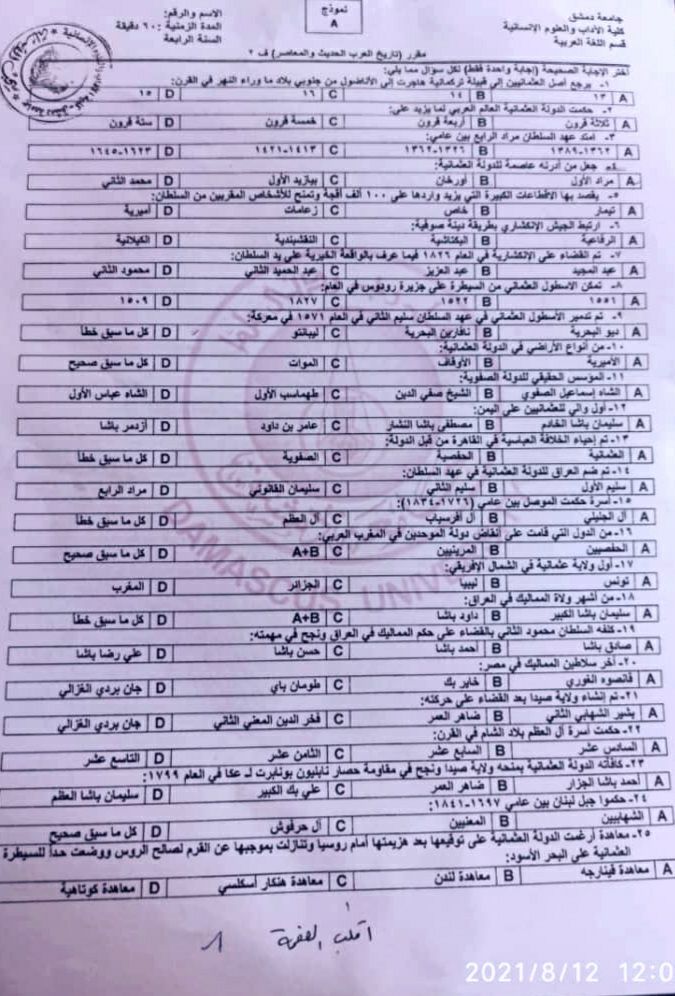 جامعة دمشق
كلية الآداب والعلوم الإنسانية
قسم اللغة العربية
نموذج
A
الاسم والرقم:
المدة الزمنية : ٦٠ دقيقة
السنة الرابعة
مقرر (تاريخ العرب الحديث والمعاصر) ف ٢
اختر الإجابة الصحيحة (إجابة واحدة فقط) لكل سؤال مما يلي:
١- يرجع أصل العثمانيين إلى قبيلة تركمانية هاجرت إلى الأناضول من جنوبي بلاد ما وراء النهر في القرن:
A ١٣ B ١٤ C ١٦ D ١٥
٢- حكمت الدولة العثمانية العالم العربي لما يزيد على:
A ثلاثة قرون B أربعة قرون C خمسة قرون D ستة قرون
٣- امتد عهد السلطان مراد الرابع بين عامي:
A ١٣٦٢-١٣٨٩ B ١٣٢٦-١٣٦٢ C ١٤١٣-١٤٢١ D ١٦٢٣-١٦٤٥
٤- جعل من أدرنه عاصمة للدولة العثمانية:
A مراد الأول B أورخان C بيازيد الأول D محمد الثاني
٥- يقصد بها الاقطاعات الكبيرة التي يزيد واردها على ١٠٠ ألف أقجة وتمنح للأشخاص المقربين من السلطان:
A تيمار B خاص C زعامات D أميرية
٦- ارتبط الجيش الإنكشاري بطريقة دينة صوفية:
A الرفاعية B البكتاشية C النقشبندية D الكيلانية
٧- تم القضاء على الإنكشارية في العام ١٨٢٦ فيما عرف بالواقعة الخيرية على يد السلطان:
A عبد المجيد B عبد العزيز C عبد الحميد الثاني D محمود الثاني
٨- تمكن الاسطول العثماني من السيطرة على جزيرة رودوس في العام:
A ١٥٥١ B ١٥٢٢ C ١٨٢٧ D ١٥٠٩
٩- تم تدمير الأسطول العثماني في عهد السلطان سليم الثاني في العام ١٥٧١ في معركة:
A ديو البحرية B نافارين البحرية C ليبانتو D كل ما سبق خطأ
١٠- من أنواع الأراضي في الدولة العثمانية:
A الأميرية B الأوقاف C الموات D كل ما سبق صحيح
١١- المؤسس الحقيقي للدولة الصفوية:
A الشاه إسماعيل الصفوي B الشيخ صفي الدين C طهماسب الأول D الشاه عباس الأول
١٢- أول والي للعثمانيين على اليمن:
A سليمان باشا الخادم B مصطفى باشا النشار C عامر بن داود D أزدمر باشا
١٣- تم إحياء الخلافة العباسية في القاهرة من قبل الدولة:
A العثمانية B الحفصية C الصفوية D كل ما سبق خطأ
١٤- تم ضم العراق للدولة العثمانية في عهد السلطان:
A سليم الأول B سليم الثاني C سليمان القانوني D مراد الرابع
١٥- أسرة حكمت الموصل بين عامي (١٧٢٦-١٨٣٤):
A آل الجليلي B آل أفرسياب C آل العظم D كل ما سبق خطأ
١٦- من الدول التي قامت على أنقاض دولة الموحدين في المغرب العربي:
A الحفصيين B المرينيين C A+B D كل ما سبق صحيح
١٧- أول ولاية عثمانية في الشمال الإفريقي:
A تونس B ليبيا C الجزائر D المغرب
١٨- من أشهر ولاة المماليك في العراق:
A سليمان باشا الكبير B داود باشا C A+B D كل ما سبق خطأ
١٩- كلفه السلطان محمود الثاني بالقضاء على حكم المماليك في العراق ونجح في مهمته:
A صادق باشا B أحمد باشا C حسن باشا D علي رضا باشا
٢٠- آخر سلاطين المماليك في مصر:
A قانصوه الغوري B خاير بك C طومان باي D جان بردي الغزالي
٢١- تم إنشاء ولاية صيدا بعد القضاء على حركته:
A بشير الشهابي الثاني B ضاهر العمر C فخر الدين المعني الثاني D جان بردي الغزالي
٢٢- حكمت أسرة آل العظم بلاد الشام في القرن:
A السادس عشر B السابع عشر C الثامن عشر D التاسع عشر
٢٣- كافأته الدولة العثمانية بمنحه ولاية صيدا ونجح في مقاومة حصار نابليون بونابرت لـ عكا في العام ١٧٩٩:
A أحمد باشا الجزار B ضاهر العمر C علي بك الكبير D سليمان باشا العظم
٢٤- حكموا جبل لبنان بين عامي ١٦٩٧-١٨٤١:
A الشهابيين B المعنيين C آل حرفوش D كل ما سبق صحيح
٢٥- معاهدة أرغمت الدولة العثمانية على توقيعها بعد هزيمتها أمام روسيا وتنازلت بموجبها عن القرم لصالح الروس ووضعت حداً للسيطرة
العثمانية على البحر الأسود:
A معاهدة قينارجه B معاهدة لندن C معاهدة هنكار أسكلسي D معاهدة كوتاهية
اقلب الصفحة
DAMASCUS UNIVERSITY
2021/8/12 12:0